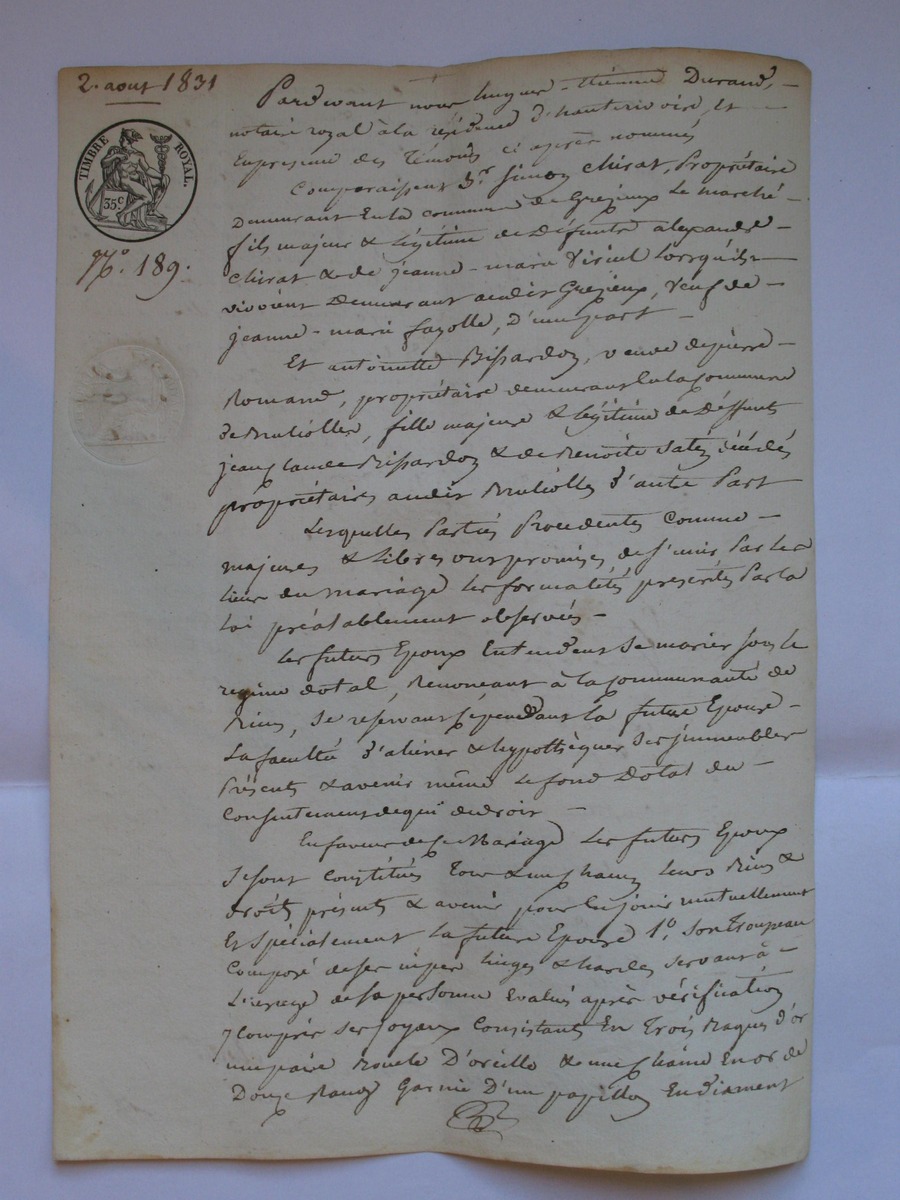 2. aout 1831
TIMBRE ROYAL.
35 c.
N.° 189.
Pardevant nous hugues-étienne Durand,
notaire royal à la résidence d'hauterivoire, Et
En presence des Témoins ci après nommés
Comparaissent Sr. Simon Chirat, Propriétaire
Demeurant En la commune de Grézieux Le marché
fils majeur & Légitime de Défunts alexandre
Chirat & de jeanne-marie Viricel Lorsqu'ils
vivoient Demeurant audit Grezieux, Veuf de
jeanne-marie fayolle, D'une part
Et antoinette Bissardon, veuve de pierre
Romand, propriétaire demeurant En la Commune
de Bruliolles, fille majeure & légitime de Deffunts
jean Claude Bissardon & de Benoite décédés
propriétaires audit Bruliolles D'autre Part
Lesquelles Parties Procedentes comme
majeures & Libres ont promises de s'unir Par les
liens du mariage les formalités prescrites Par la
Loi préalablement observées
Les futurs Epoux Entendent se marier sous le
regime dotal, Renonceant à la Communauté de
Biens, se reservant cependant la future Epouse
La faculté D'aliéner & hypothèquer Ses jmmeubles
Présents & avenir même Le fond Dotal du
Consentement de qui de droit
En faveur de ce Mariage Les futurs Epoux
Se sont Constitués Tous & un chacun leurs Biens &
droits présents & avenir pour En jouir mutuellement
Et Spécialement La future Epouse 1.° Son Trousseau
Composé de ses linges & hardes Servant à
L'usage de sa personne Evalués après vérification
y Compris ses joyaux Consistants En Trois Bagues d'or
une paire Boucle D'oreille & une Chaine En or de
Douze Rangs Garnie D'un papillon En Diament